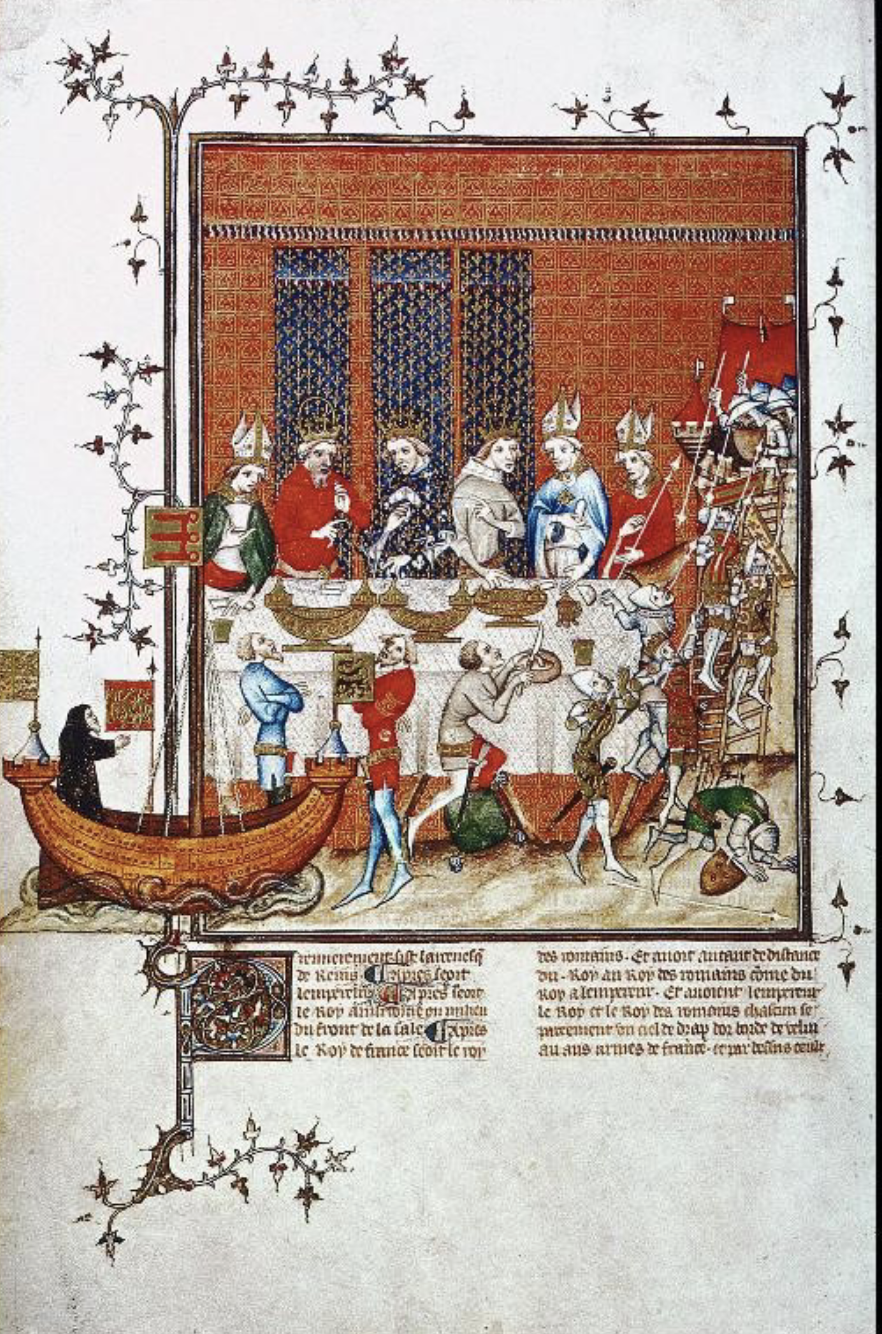 Premierement sist larcevesq
de Reims. Apres seoit
lempereur. Apres seoit
le Roy ou milieu
du front de la sale. Apres
le Roy de france seoit le roy
des romains. Et avoit autant de distance
du Roy au Roy des romains come du
Roy a lempereur. Et avoient lempereur
le Roy et le Roy des romains chascun se
parement un ciel de drap dor borde de velu
au aus armes de france. et par dessus ceulx